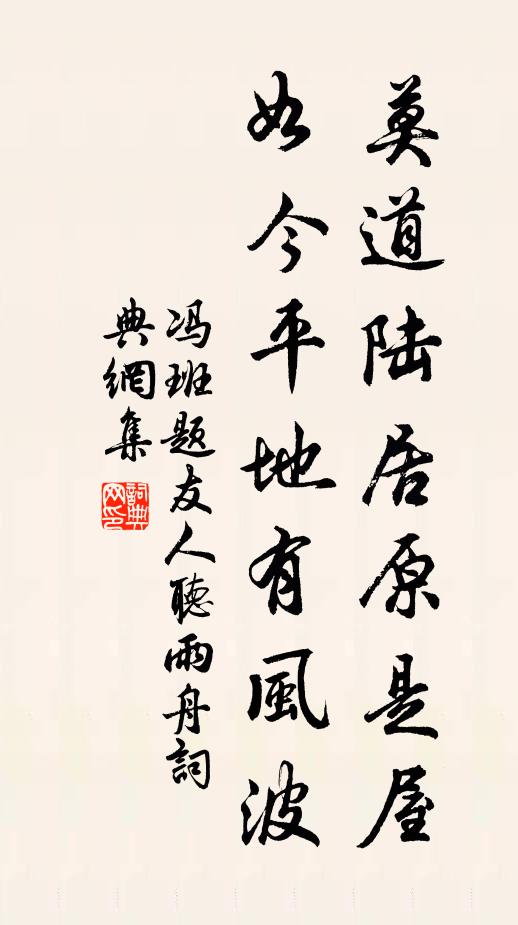 莫道陆居原是屋
如今平地有風波
冯班题友人聽雨舟詞
典網集
詞典网印